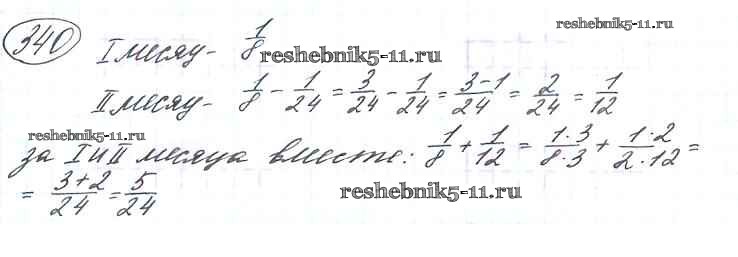 340 I месяц - 1/8 reshebnik5-11.ru
reshebnik5-11.ru
II месяц - 1/8 - 1/24 = 3/24 - 1/24 = (3-1)/24 = 2/24 = 1/12
reshebnik5-11.ru
за I и II месяца вместе: 1/8 + 1/12 = (1·3)/(8·3) + (1·2)/(2·12) =
= (3+2)/24 = 5/24
reshebnik5-11.ru